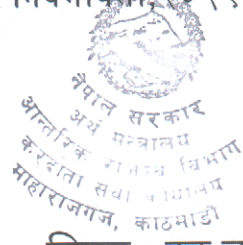 नेपाल सरकार
अर्थ मन्त्रालय
आन्तरिक राजस्व विभाग
करदाता सेवा कार्यालय
माहाराजगंज, काठमाडौं